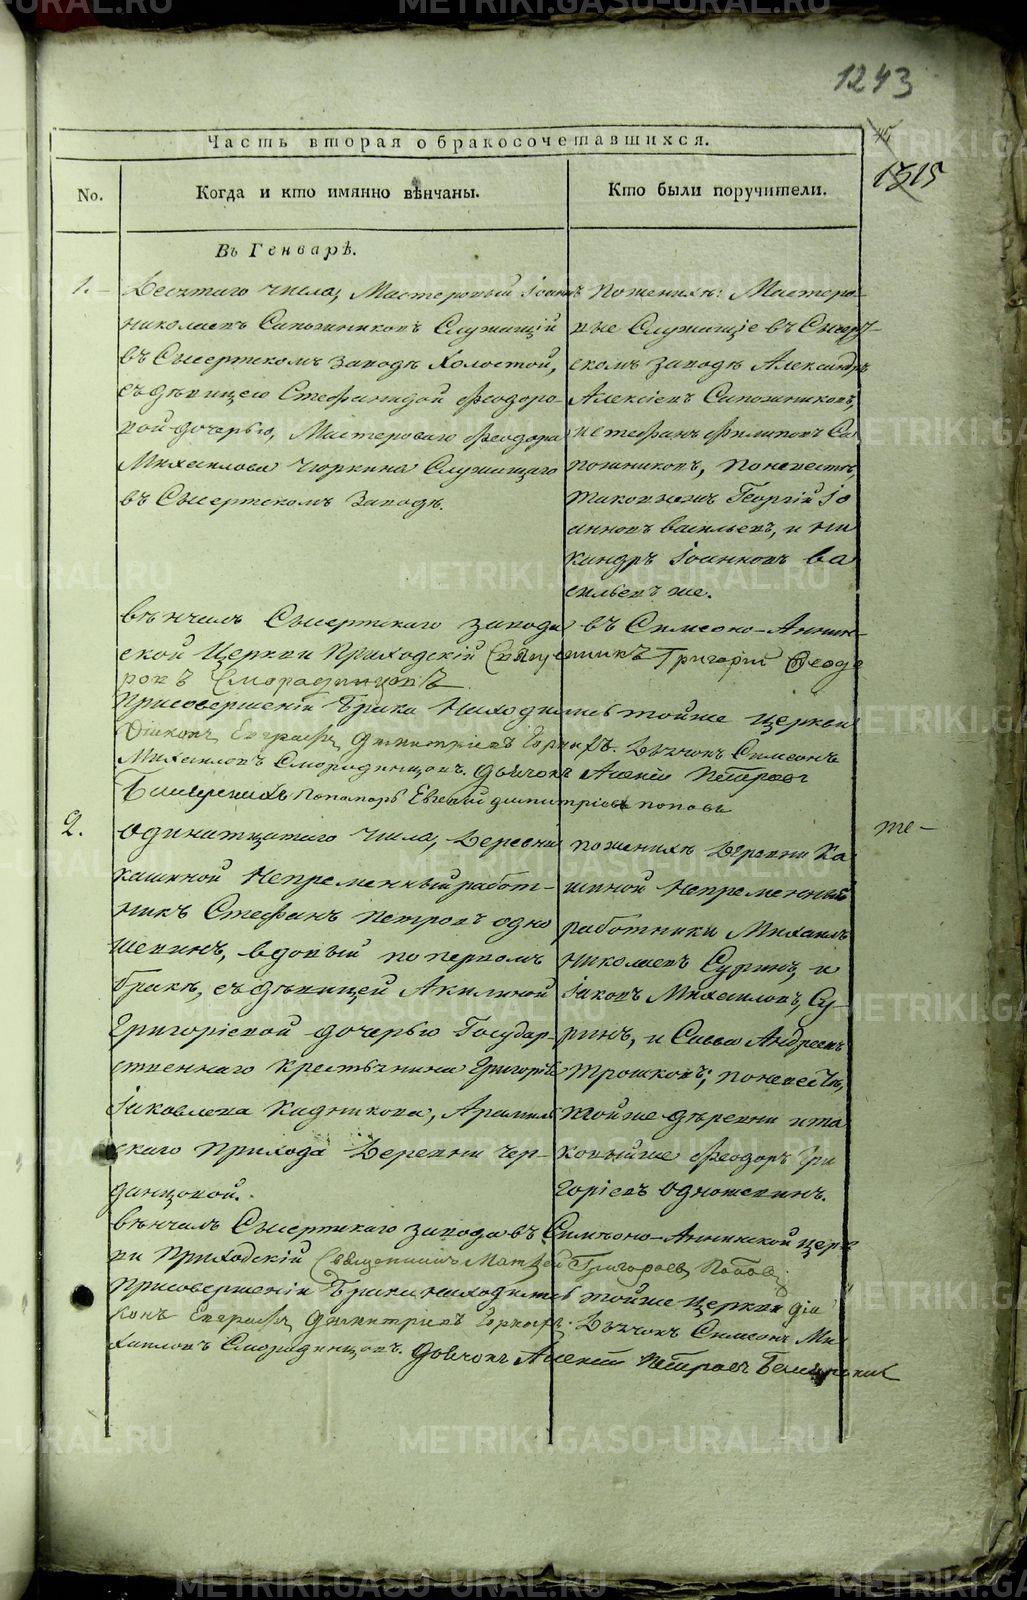 1243
Часть вторая о бракосочетавшихся.
1315
No.
Когда и кто имянно вѣнчаны.
Кто были поручители.
Въ Генварѣ.
1.
Десятаго числа, Мастеровый Іоаннъ
Николаевъ Сапожниковъ Служащій
въ Сысертскомъ заводѣ Холостой,
съ дѣвицею Стефанидой Феодоро-
вой дочерью, Мастероваго Феодора
Михаилова Чюркина Служащаго
въ Сысертскомъ Заводѣ.
Пожених: Мастеро-
вые Служащіе въ Сысерт-
скомъ заводѣ Александръ
Алексіевъ Сапожниковъ,
и Стефанъ Филиповъ Са
пожниковъ, поневестѣ
таковыежъ Георгій Іо
анновъ Васильевъ, и Ни
кандръ Іоанновъ Ва
сильевъ же.
вѣнчалъ Сысертскаго завода въ Симеоно-Аннин-
ской Церкви Приходскій Священникъ Григорій Феодо
ровъ Смородинцовъ
Присовершеніи Брака Находились тойже Церкви
Діаконъ Евграфъ Димитріевъ Горныхъ. Дьячокъ Симеонъ
Михаиловъ Смородинцовъ. Дьячокъ Алексій Петровъ
Пономарь Евгеній Димитріевъ Поповъ
2.
Одинатцатаго Числа, Деревни
Кашиной Непременный работ-
никъ Стефанъ Петровъ Одно
шевинъ, вдовый попервомъ
бракѣ, съ дѣвицей Акилиной
Григоріевой дочерью Государ-
ственнаго Крестьянина Григорія
Іаковлева Кадникова, Арамил
скаго Прихода Деревни Чер-
данцовой.
пожених Деревни Ка
шиной Непременный
работники Михаилъ
Николаевъ Суринъ, и
Іаковъ Михаиловъ Су-
ринъ, и Савва Андреевъ
Трошковъ; поневестѣ,
тойже дѣревни и та
ковыйже Феодоръ Гри
горіевъ Одношевинъ.
те-
вѣнчалъ Сысертскаго завода въ Симеоно-Аннинской Церк
ви Приходскій Священникъ Матѳей Григорьев Попов
Присовершеніи Брака находились тойже Церкви Діа
конъ Евграфъ Димитріевъ Горныхъ. Дьячокъ Симеонъ Ми
хаиловъ Смородинцовъ. Дьячокъ Алексій Петровъ
METRIKI.GASO-URAL.RU